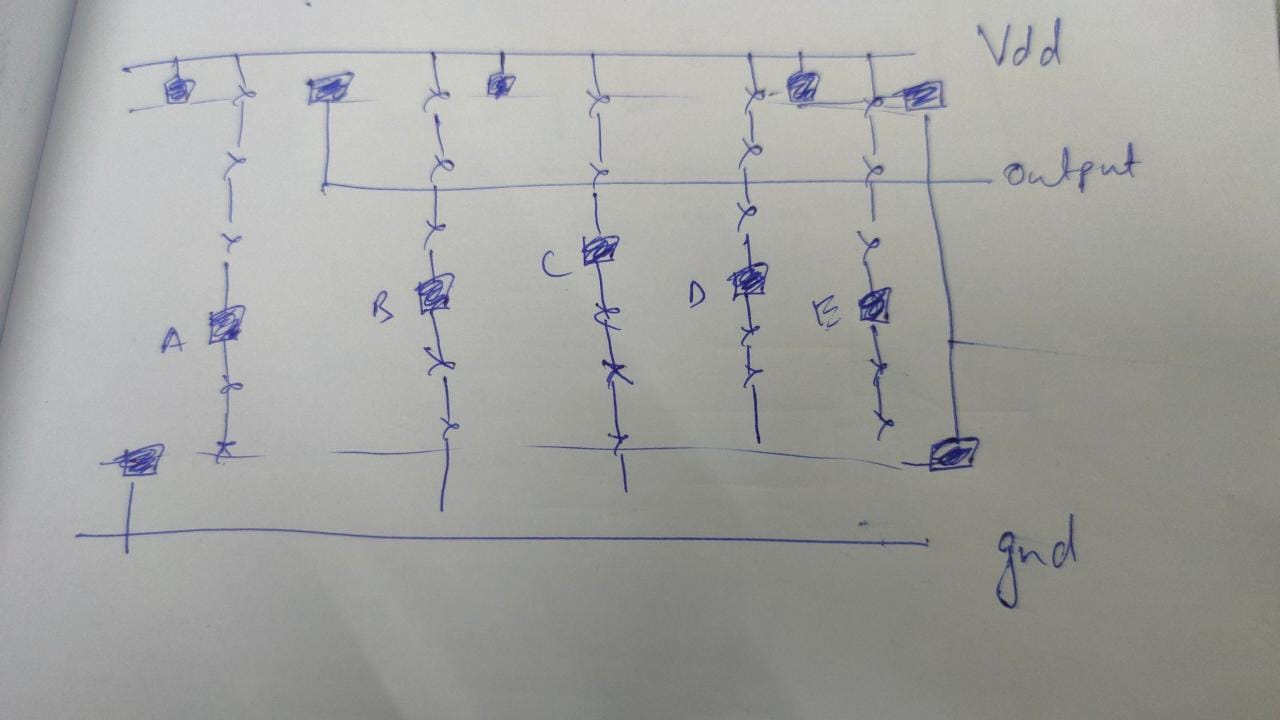 Vdd
output
C
B
D
E
A
gnd